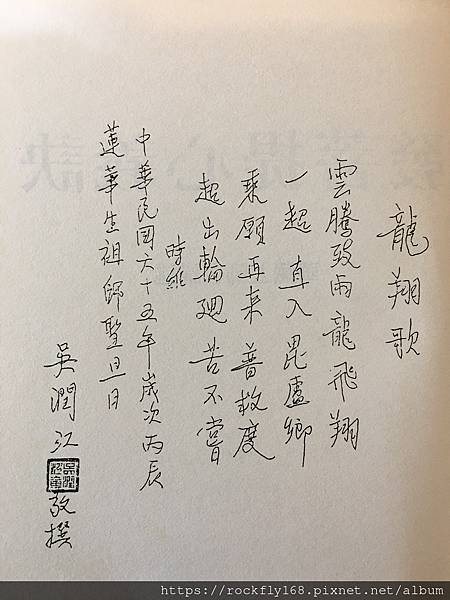 龍翔歌
雲騰致雨龍飛翔
一超直入毘盧鄉
乘願再来普救度
超出輪廻苦不嘗
時維
中華民國六十五年歲次丙辰
蓮華生祖師聖旦日
吳潤江 敬撰
https://rockfly168.pixnet.net/album